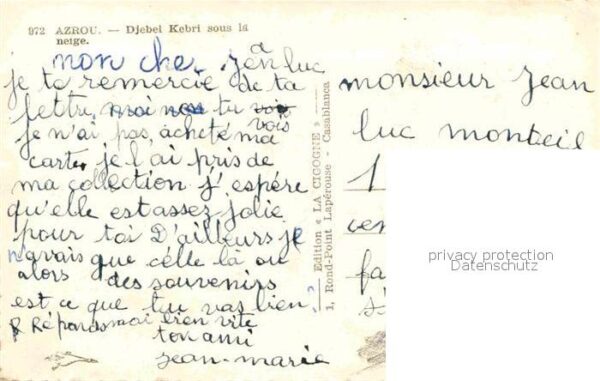 972 AZROU. — Djebel Kebri sous la
neige.
mon cher Jean luc
je te remercie de ta
lettre moi tu vois
je n'ai pas acheté ma
carte je l'ai pris de
ma collection j'espère
qu'elle est assez jolie
pour toi D'ailleurs je
n'avais que celle là ou
alors des souvenirs
est ce que tu vas bien ?
Réponds moi bien vite
ton ami
Jean-marie
Edition « LA CIGOGNE »
1, Rond-Point Lapérouse - Casablanca
monsieur Jean
luc monteil
1
cen
fa
privacy protection
Datenschutz